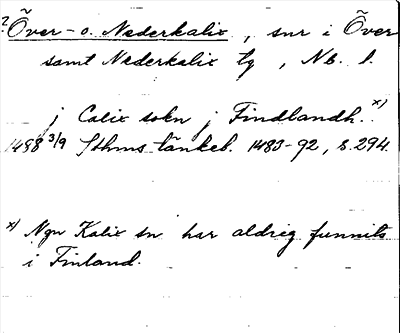 ?
Över- o. Nederkalix, snr i Över
samt Nederkalix tg, Nb. l.
j Calix sokn j Findlandh. x)
1498 3/9 Sthms tänkeb. 1483-92, s. 294.
x) Ngn Kalix sn har aldrig funnits
i Finland.